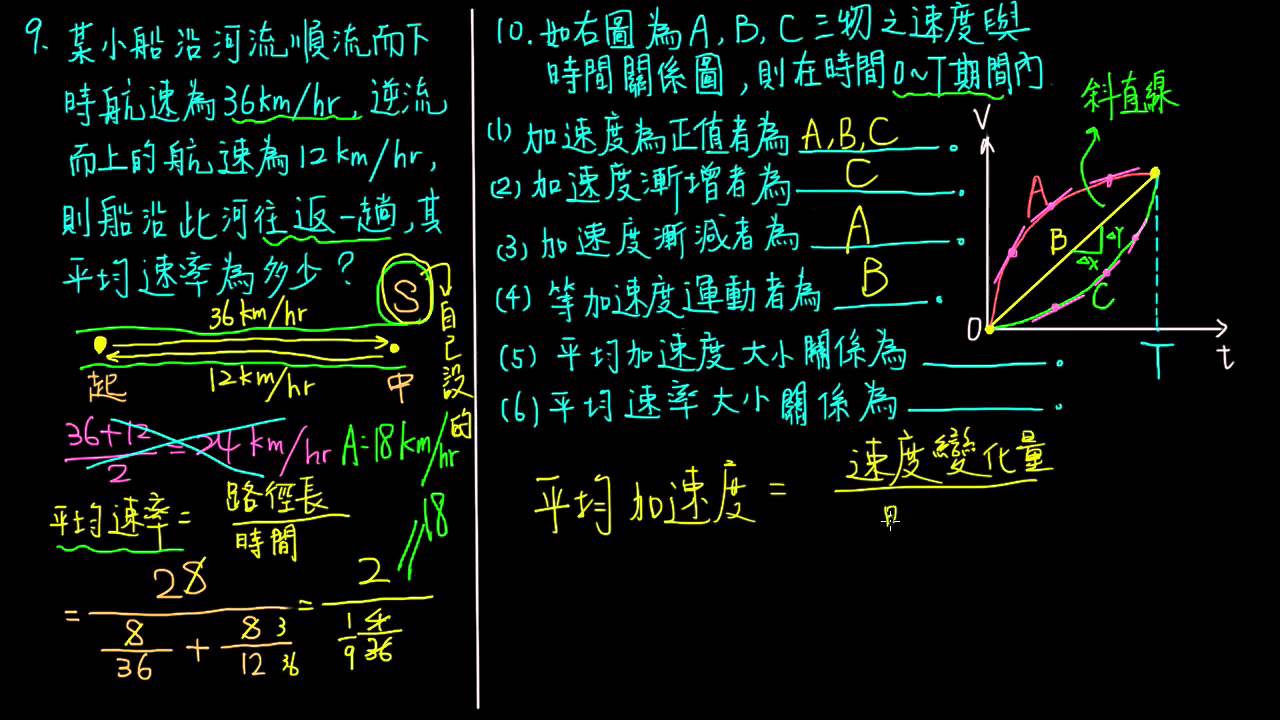 9. 某小船沿河流順流而下
時航速為36km/hr, 逆流
而上的航速為12km/hr,
則船沿此河往返一趟,其
平均速率為多少?
S
自己設的
36km/hr
12km/hr
起
中
36+12/2=24km/hr
A=18km/hr
平均速率=路徑長/時間
=2S/(S/36+S/12 3/36)=2/(4/36 1/9)
18
10. 如右圖為A, B, C三物之速度與
時間關係圖,則在時間0~T期間內
(1) 加速度為正值者為 A,B,C 。
(2) 加速度漸增者為 C 。
(3) 加速度漸減者為 A 。
(4) 等加速度運動者為 B 。
(5) 平均加速度大小關係為 。
(6) 平均速率大小關係為 。
斜直線
V
A
B
ΔY
ΔX
C
O
T
t
平均加速度=速度變化量